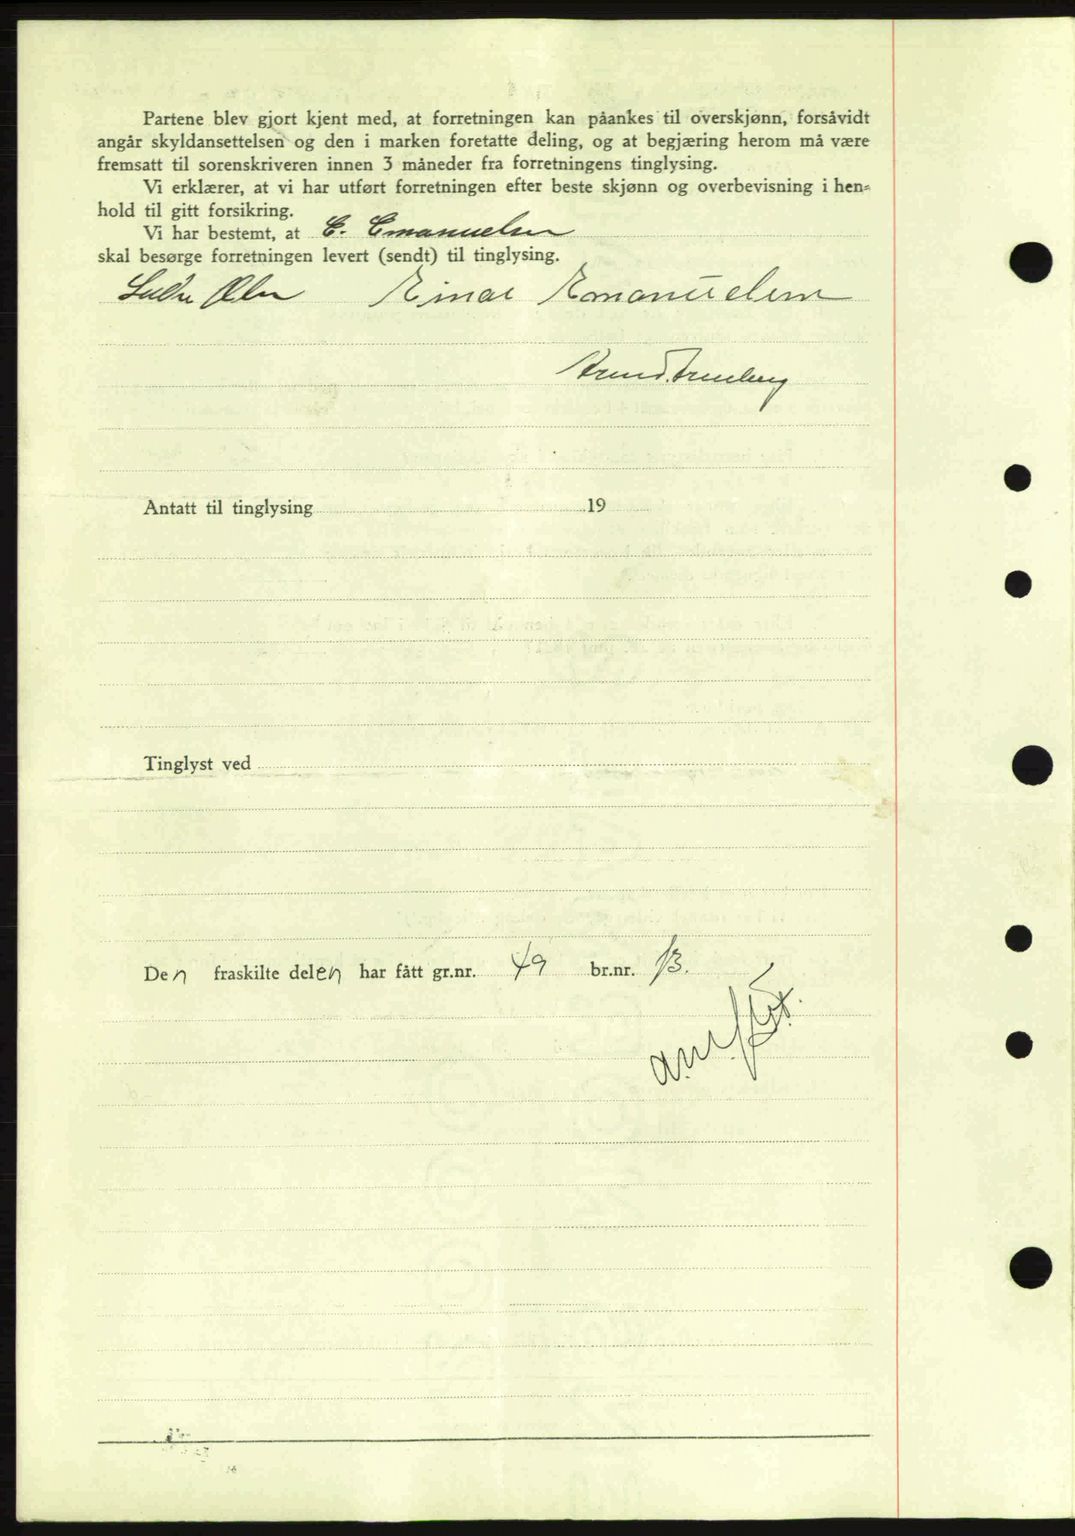 Partene blev gjort kjent med, at forretningen kan påankes til overskjønn, forsåvidt
angår skyldansettelsen og den i marken foretatte deling, og at begjæring herom må være
fremsatt til sorenskriveren innen 3 måneder fra forretningens tinglysing.
Vi erklærer, at vi har utført forretningen efter beste skjønn og overbevisning i hen=
hold til gitt forsikring.
Vi har bestemt, at E. Emanuelsen
skal besørge forretningen levert (sendt) til tinglysing.
Einar Emanuelsen
Antatt til tinglysing 19
Tinglyst ved
Den fraskilte delen har fått gr.nr. 49 br.nr. 13.